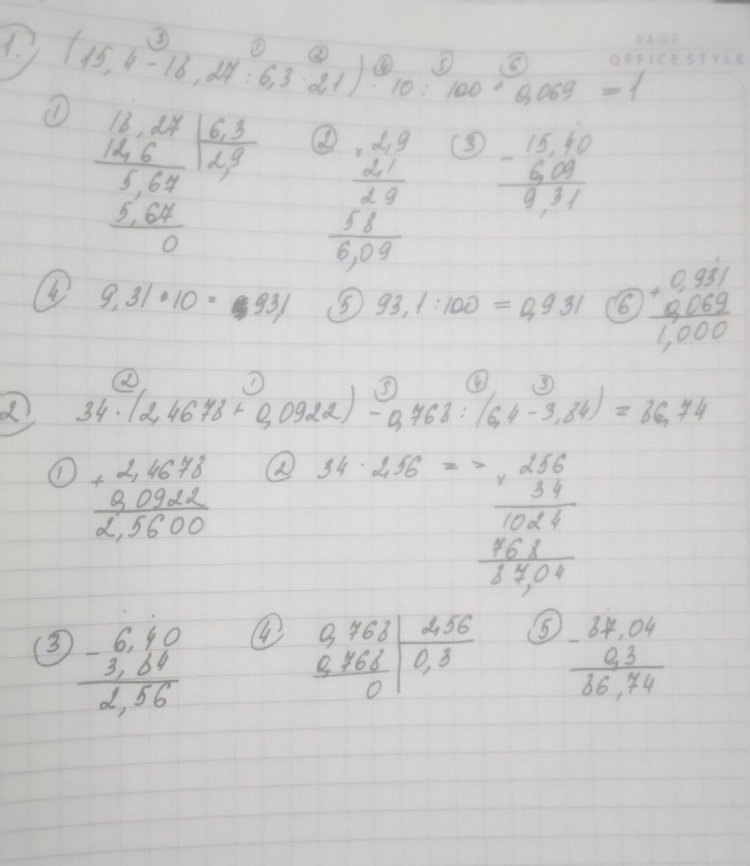 PAGE
OFFICE STYLE
③ ① ② ④ 5 ⑥
1. (15,4 - 18,27 : 6,3 · 2,1) · 10 : 100 + 0,069 = 1
① 18,27 | 6,3
12,6 | 2,9
5,67
5,67
0
② × 2,9
2,1
29
58
6,09
③ - 15,40
6,09
9,31
④ 9,31 · 10 = 93,1
⑤ 93,1 : 100 = 0,931
⑥ + 0,931
0,069
1,000
② ① ⑤ ④ ③
2 34 · (2,4678 + 0,0922) - 0,768 : (6,4 - 3,84) = 86,74
① + 2,4678
0,0922
2,5600
② 34 · 2,56 = >
× 256
34
1024
768
87,04
③ - 6,40
3,84
2,56
④ 0,768 | 2,56
0,768 | 0,3
0
⑤ - 87,04
0,3
86,74